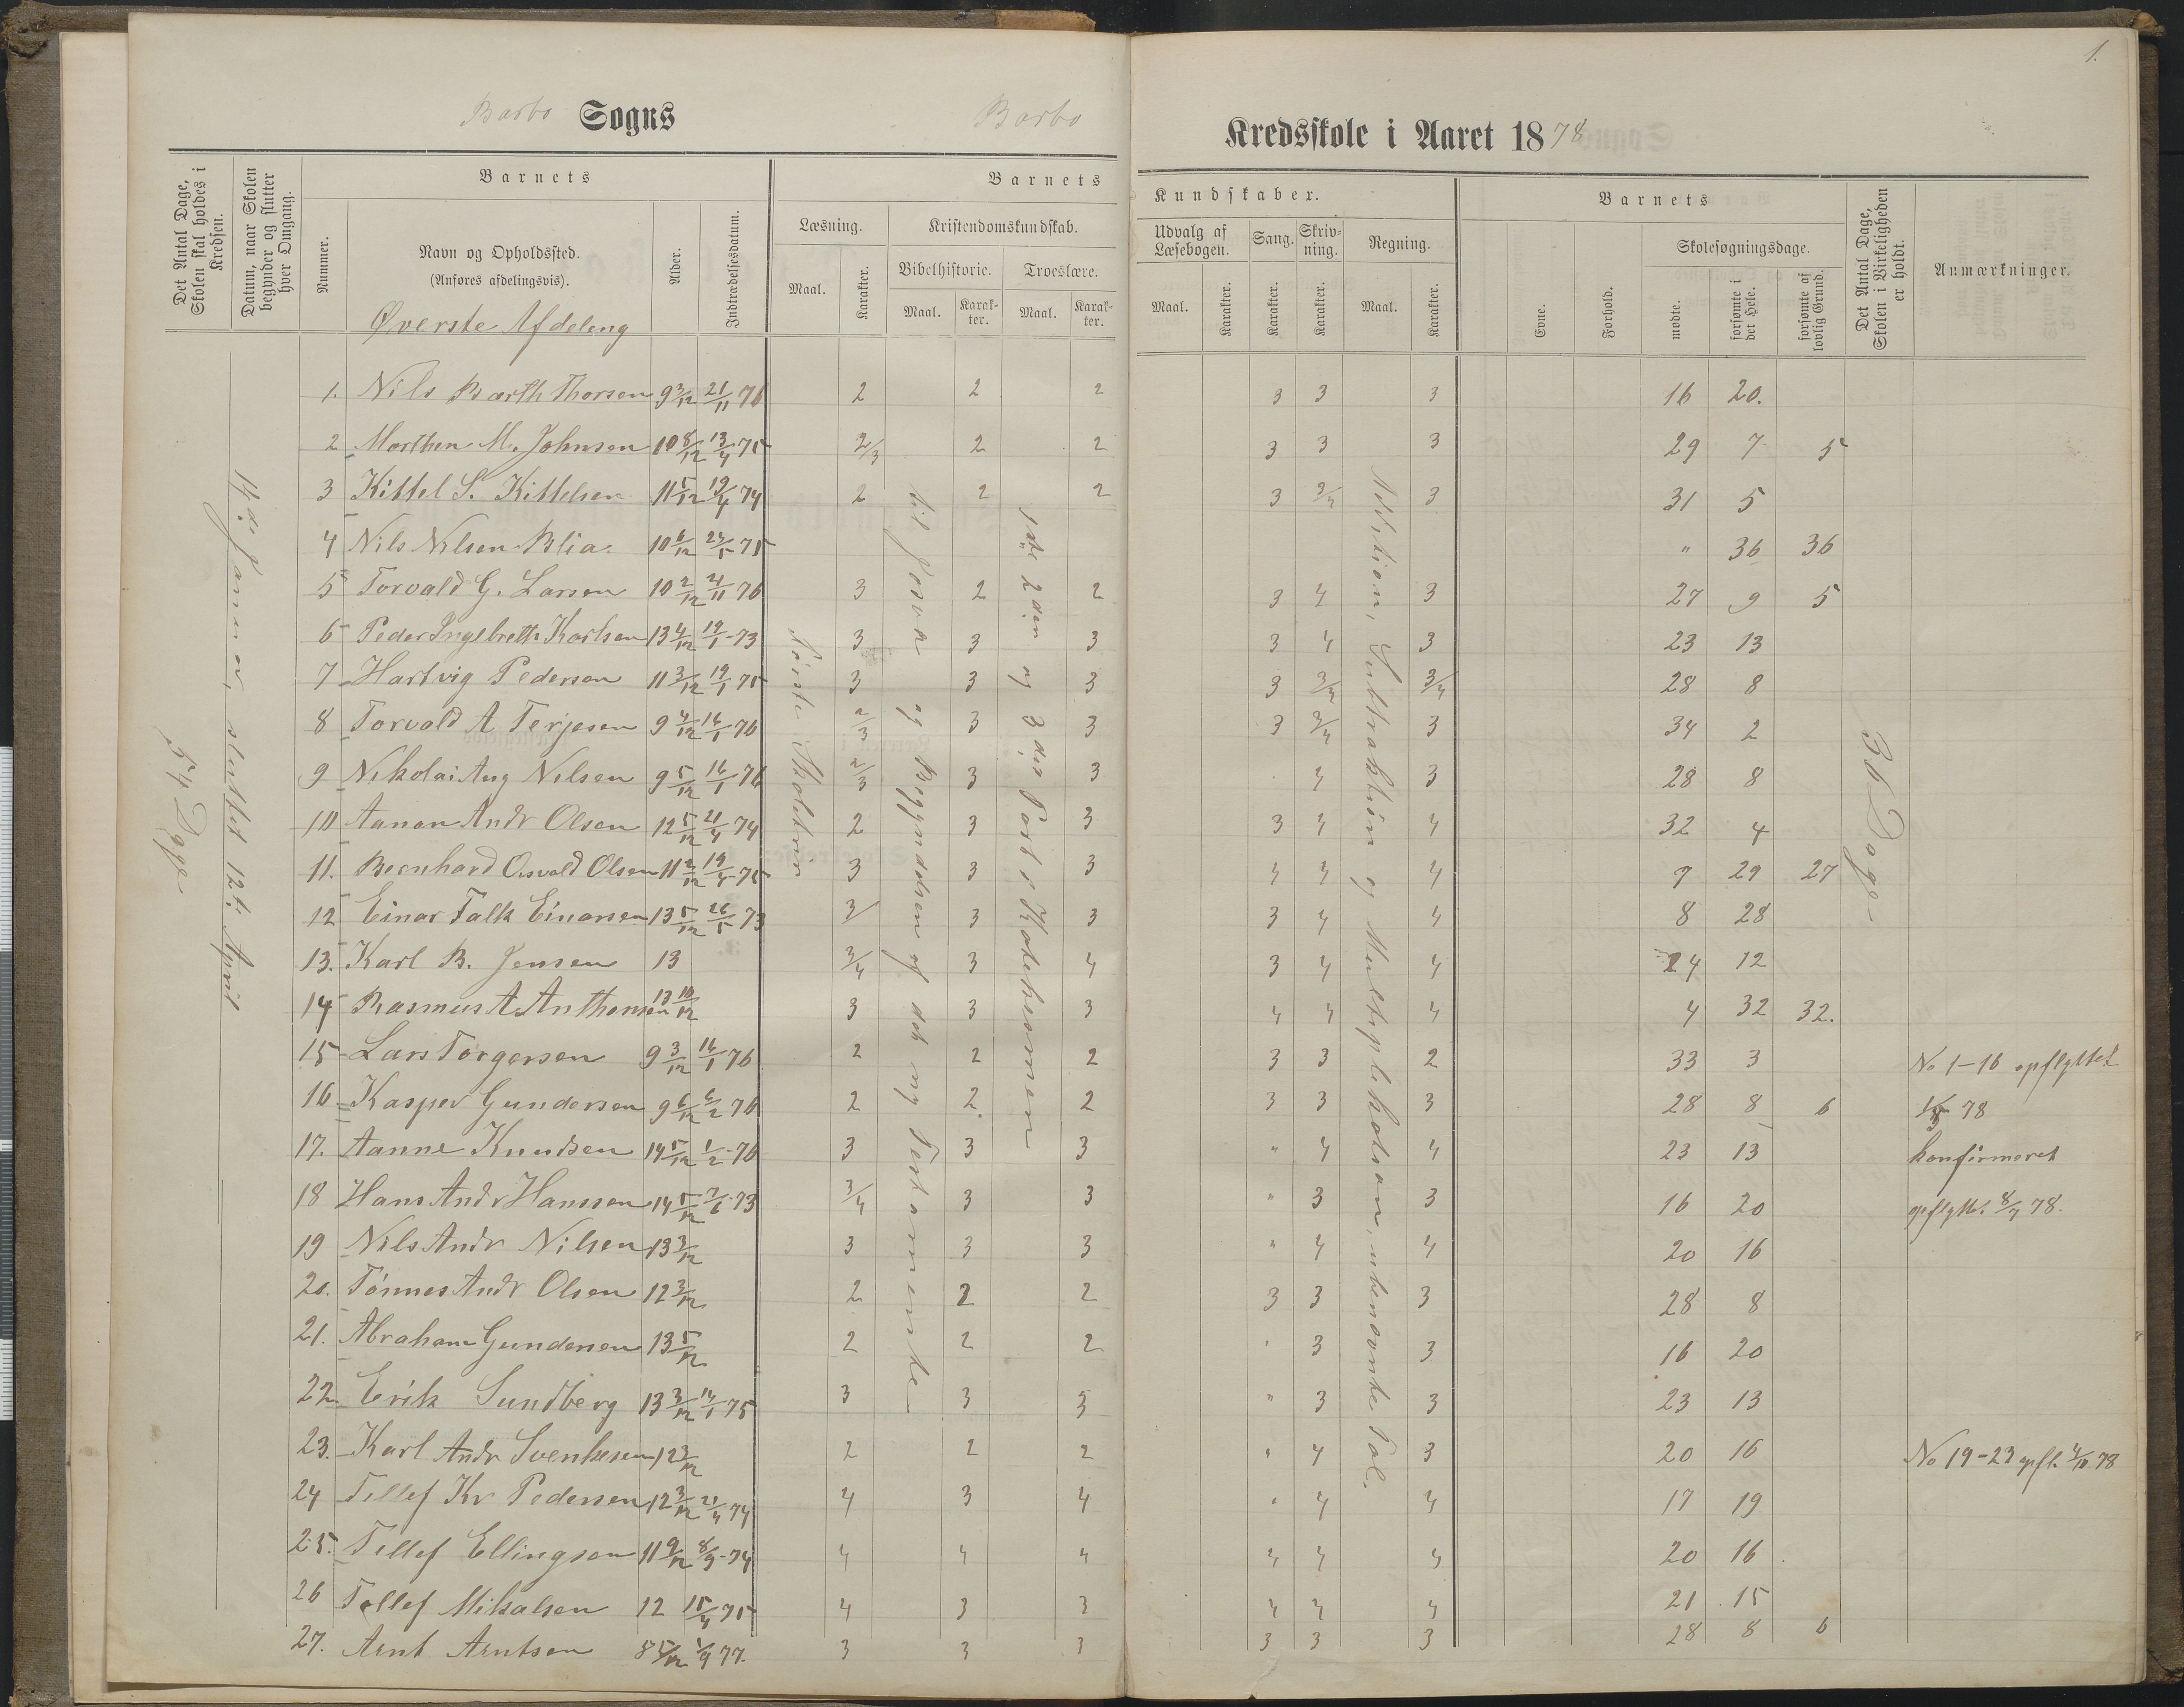 1.
Barbo Sogns Barbo Kredsskole i Aaret 1878
Det Antal Dage, Skolen skal holdes i Kredsen.
Datum, naar Skolen begynder og slutter hver Omgang.
Barnets
Nummer.
Navn og Opholdssted.
(Anføres afdelingsvis).
Alder.
Indtrædelsesdatum.
Barnets Kundskaber.
Læsning.
Maal. Karakter.
Kristendomskundskab.
Bibelhistorie. Troeslære.
Maal. Karakter. Maal. Karakter.
Udvalg af Læsebogen. Sang. Skrivning. Regning.
Maal. Karakter. Karakter. Karakter. Maal. Karakter.
Barnets
Evne. Forhold.
Skolesøgningsdage.
mødte. forsømte i det Hele. forsømte af lovlig Grund.
Det Antal Dage, Skolen i Virkeligheden er holdt.
Anmærkninger.
Øverste Afdeling
54 Dage
14de Januar, sluttet 12te April
Første Skoletrin
til Josva og Begyndelsen af det ny Testamente
1ste 2den og 3die Part i Katekismen
Addition, Subtraktion og Multiplikation, ubenævnte Tal.
36 Dage
1. Nils Barth Thorsen 9 3/12 21/11 76 2 2 2 3 3 3 16 20.
2 Morthen M. Johnsen 10 8/12 13/4 75 2/3 2 2 3 3 3 29 7 5
3 Kittel S. Kittelsen 11 5/12 19/4 74 2 2 2 3 3/4 3 31 5
4 Nils Nilsen Blia 10 6/12 24/5 75 " 36 36
5 Torvald G. Larsen 10 2/12 21/11 76 3 2 2 3 4 3 27 9 5
6 Peder Ingebreth Karlsen 13 4/12 19/1-73 3 3 3 3 4 3 23 13
7 Hartvig Pedersen 11 3/12 19/1 75 3 3 3 3 3/4 3/4 28 8
8 Torvald A Terjesen 9 4/12 16/1 76 2/3 3 3 3 3/4 3 34 2
9 Nikolai Aug Nilsen 9 5/12 16/1 76 2/3 3 3 4 3 28 8
10 Aanon Andr Olsen 12 5/12 21/4 74 2 3 3 3 4 4 32 4
11. Bernhard Osvald Olsen 11 2/12 19/4-75 3 3 3 4 4 4 7 29 27
12 Einar Falk Einarsen 13 5/12 26/5 73 3 3 3 3 4 4 8 28
13. Karl B. Jensen 13 3/4 3 4 3 4 4 24 12
14 Rasmus A Anthonsen 13 10/12 3 3 3 4 4 4 4 32 32.
15 Lars Torgersen 9 3/12 16/1 76 2 2 2 3 3 2 33 3 No 1-16 opflyttet
16 Kasper Gundersen 9 6/12 6/2 76 2 2. 2 3 3 3 28 8 6 78
17. Aanne Knudsen 14 5/12 1/2-76 3 3 3 " 4 4 23 13 konfirmeret
18 Hans Andr Hanssen 14 5/12 7/6-73 3/4 3 3 " 3 3 16 20 opflytt. 8/7 78.
19 Nils Andr Nilsen 13 3/12 3 3 3 " 4 4 20 16
20. Tønnes Andr Olsen 12 3/12 2 2 2 3 3 3 28 8
21. Abraham Gundersen 13 5/12 2 2 2 " 3 3 16 20
22 Erik Sundberg 13 3/12 14/1 75 3 3 3 " 3 3 23 13
23. Karl Andr Svenkesen 12 3/12 2 2 2 " 4 3 20 16 No 19-23 opfl. 4/10 78
24 Tellef Kr Pedersen 12 3/12 21/4 74 4 3 4 " 4 4 17 19
25. Tellef Ellingsen 11 9/12 8/9-74 4 4 4 4 4 4 20 16
26 Tellef Mikalsen 12 15/4 75 4 3 3 4 4 4 21 15
27. Arnt Arntsen 8 5/12 77. 3 3 3 3 3 3 28 8 6